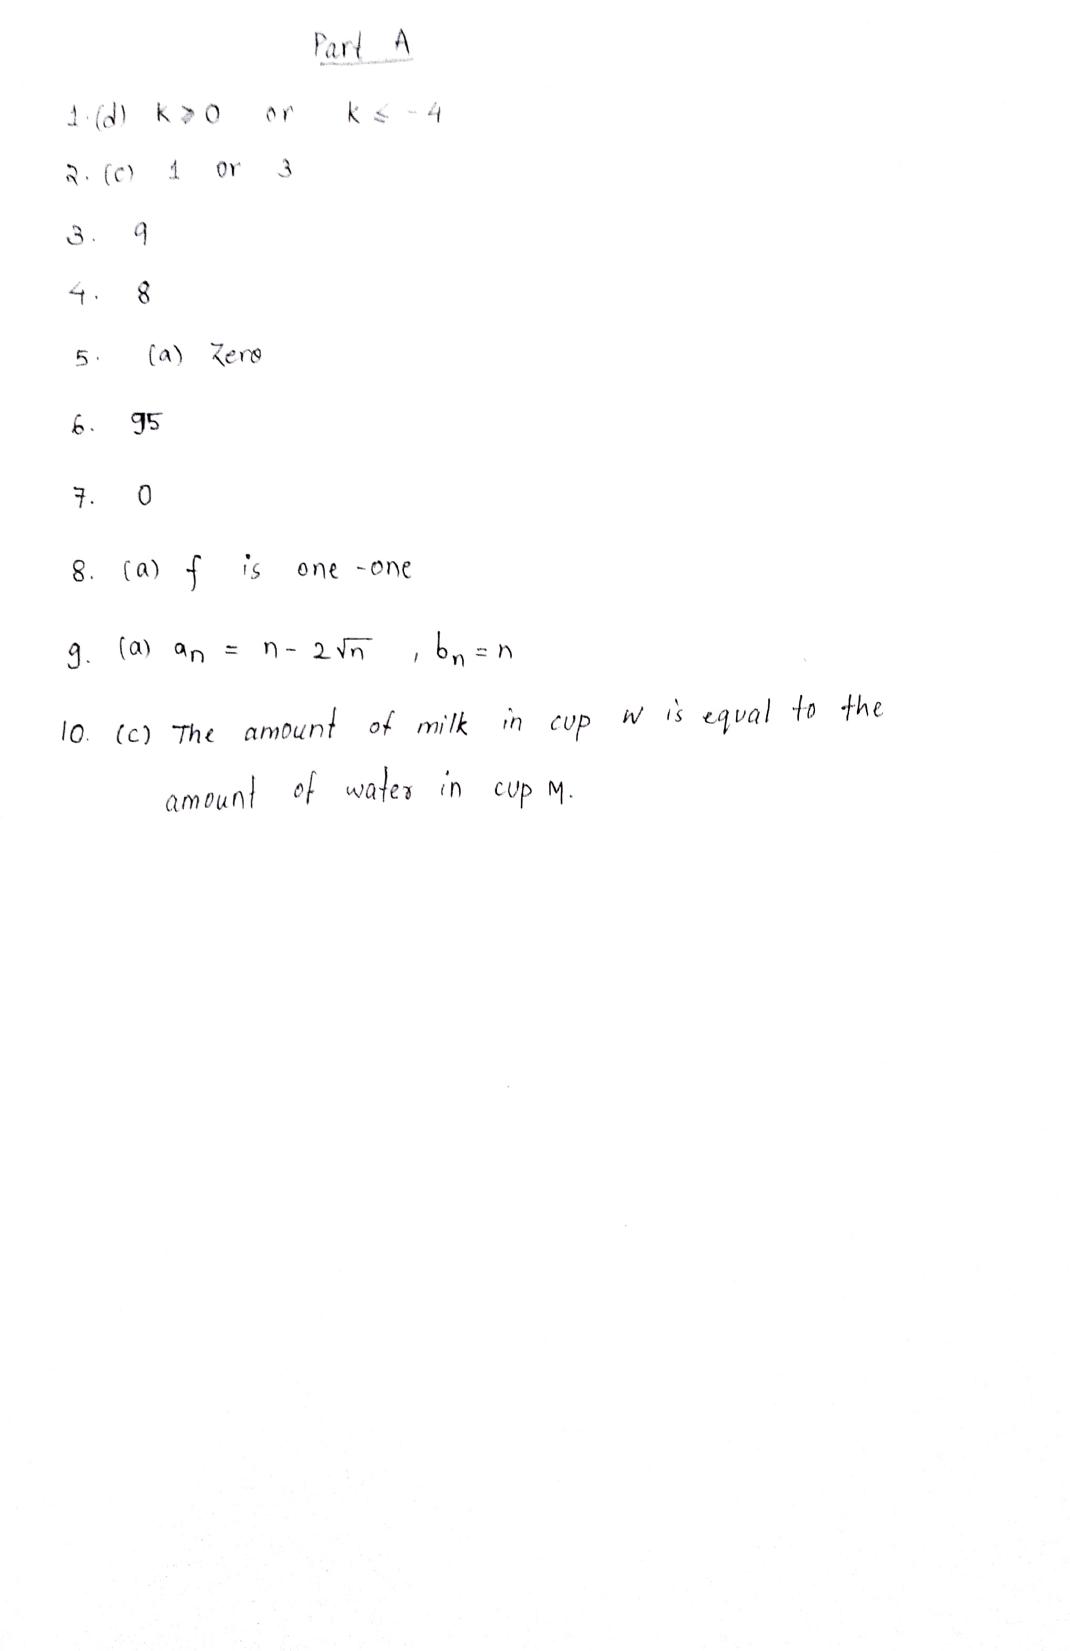 Part A
1. (d) k ⩾ 0 or k ⩽ -4
2. (c) 1 or 3
3. 9
4. 8
5. (a) Zero
6. 95
7. 0
8. (a) f is one-one
9. (a) aₙ = n - 2√n , bₙ = n
10. (c) The amount of milk in cup W is equal to the
amount of water in cup M.